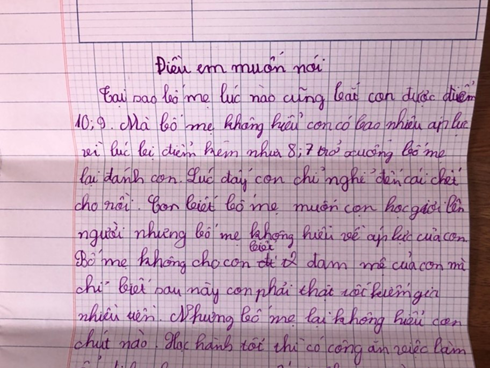 Điều em muốn nói
Tại sao bố mẹ lúc nào cũng bắt con được điểm
10; 9. Mà bố mẹ không hiểu con có bao nhiêu áp lực
vì lúc bị điểm kém như 8; 7 trở xuống bố mẹ
lại đánh con. Lúc đấy con chỉ nghĩ đến cái chết
cho rồi. Con biết bố mẹ muốn con học giỏi lên
người nhưng bố mẹ không hiểu về áp lực của con.
Bố mẹ không cho con biết dam mê của con mà
chỉ biết sau này con phải thật tốt kiếm
nhiều tiền. Nhưng bố mẹ lại không hiểu con
chút nào. Học hành tốt thì có công ăn việc làm